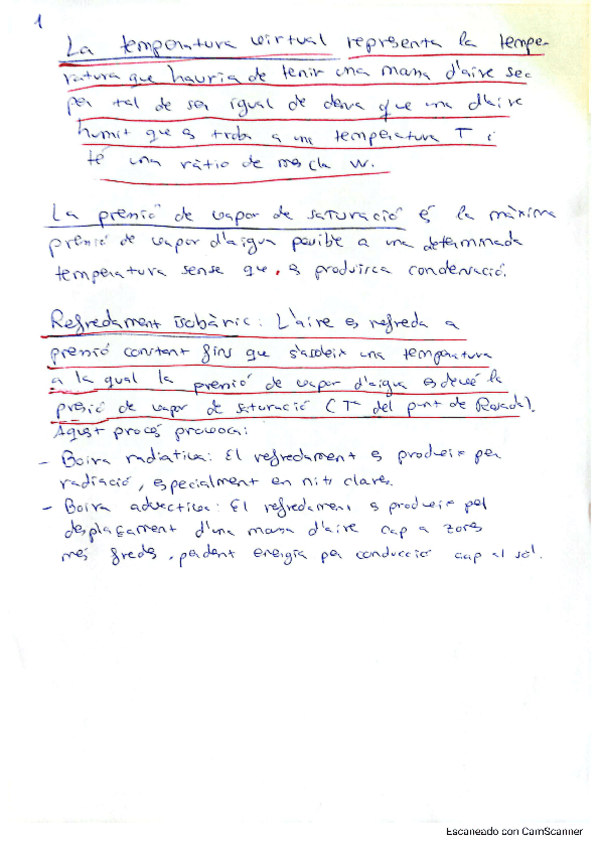 1
La temperatura virtual representa la tempe-
ratura que hauria de tenir una massa d'aire sec
per tal de ser igual de densa que una d'aire
humit que es troba a una temperatura T i
té una ràtio de mescla w.
La pressió de vapor de saturació és la màxima
pressió de vapor d'aigua possible a una determinada
temperatura sense que es produeixca condensació.
Refredament isobàric: L'aire es refreda a
pressió constant fins que s'asoleix una temperatura
a la qual la pressió de vapor d'aigua esdevé la
presió de vapor de saturació (Tª del punt de Rosada).
Aquest procés provoca:
- Boira radiativa: El refredament es produeix per
radiació, especialment en nits clares.
- Boira advectiva: El refredament es produeix pel
desplaçament d'una massa d'aire cap a zones
més fredes, perdent energia per conducció cap al sòl.
Escaneado con CamScanner